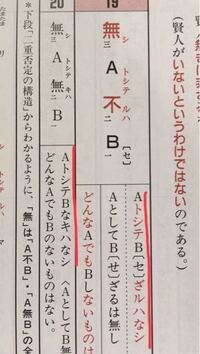 (賢人がいないというわけではないのである。)
19
無三シA トシテ不二ルハB一〔セ〕
AトシテB〔セ〕ザルハナシ
AとしてB〔せ〕ざるは無し
どんなAでもBしないものは
20
無三シA トシテ無二キハB一
AトシテBなキハなシ〈AとしてB無
どんなAでもBのないものはない。
*下段「二重否定の構造」からわかるように、「無」は「A不B」・「A無B」の全